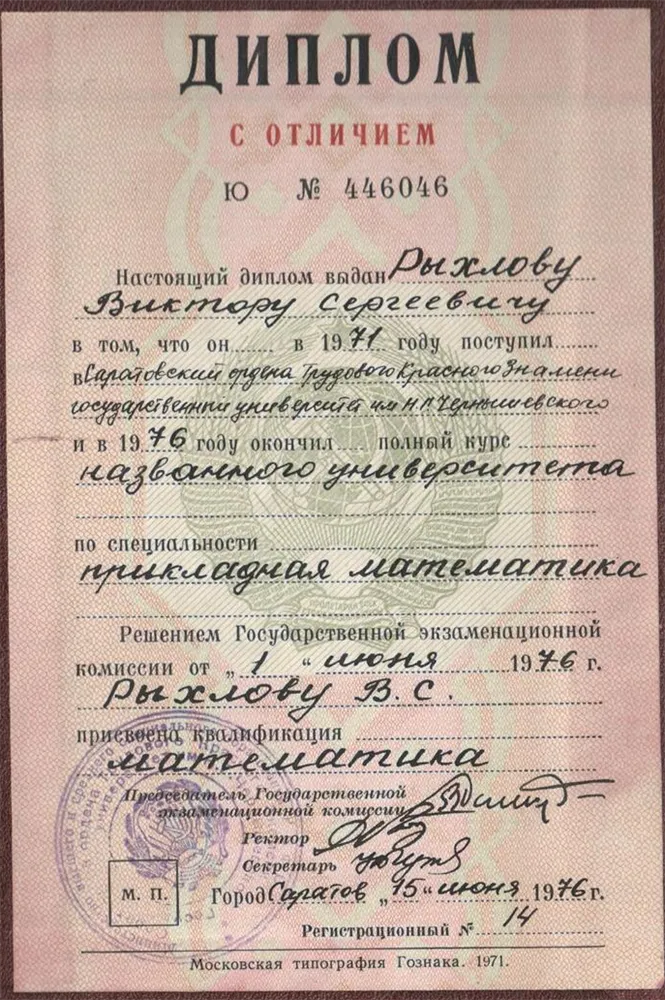 ДИПЛОМ
С ОТЛИЧИЕМ
Ю № 446046
Настоящий диплом выдан Рыхлову
Виктору Сергеевичу
в том, что он в 1971 году поступил
в Саратовский ордена Трудового Красного Знамени
государственный университет им Н.Г.Чернышевского
и в 1976 году окончил полный курс
названного университета
по специальности
прикладная математика
Решением Государственной экзаменационной
комиссии от „1“ июня 1976 г.
Рыхлову В.С.
присвоена квалификация
математика
Председатель Государственной
экзаменационной комиссии
Ректор
Секретарь
М. П.
Город Саратов „15“ июня 1976 г.
Регистрационный № 14
Московская типография Гознака. 1971.